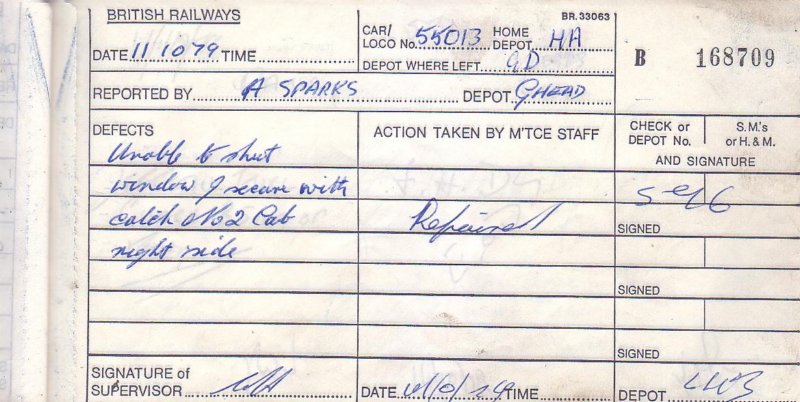 BRITISH RAILWAYS
BR. 33063
DATE 11 10 79 TIME
CAR/ LOCO No. 55013 HOME DEPOT HA
DEPOT WHERE LEFT GD
B 168709
REPORTED BY A SPARKS DEPOT GHEAD
DEFECTS
ACTION TAKEN BY M'TCE STAFF
CHECK or DEPOT No.
S.M.'s or H. & M.
AND SIGNATURE
Unable to shut
window & secure with
catch No 2 Cab
right side
Repaired
SIGNED
SIGNED
SIGNED
SIGNATURE of SUPERVISOR
DATE TIME
DEPOT